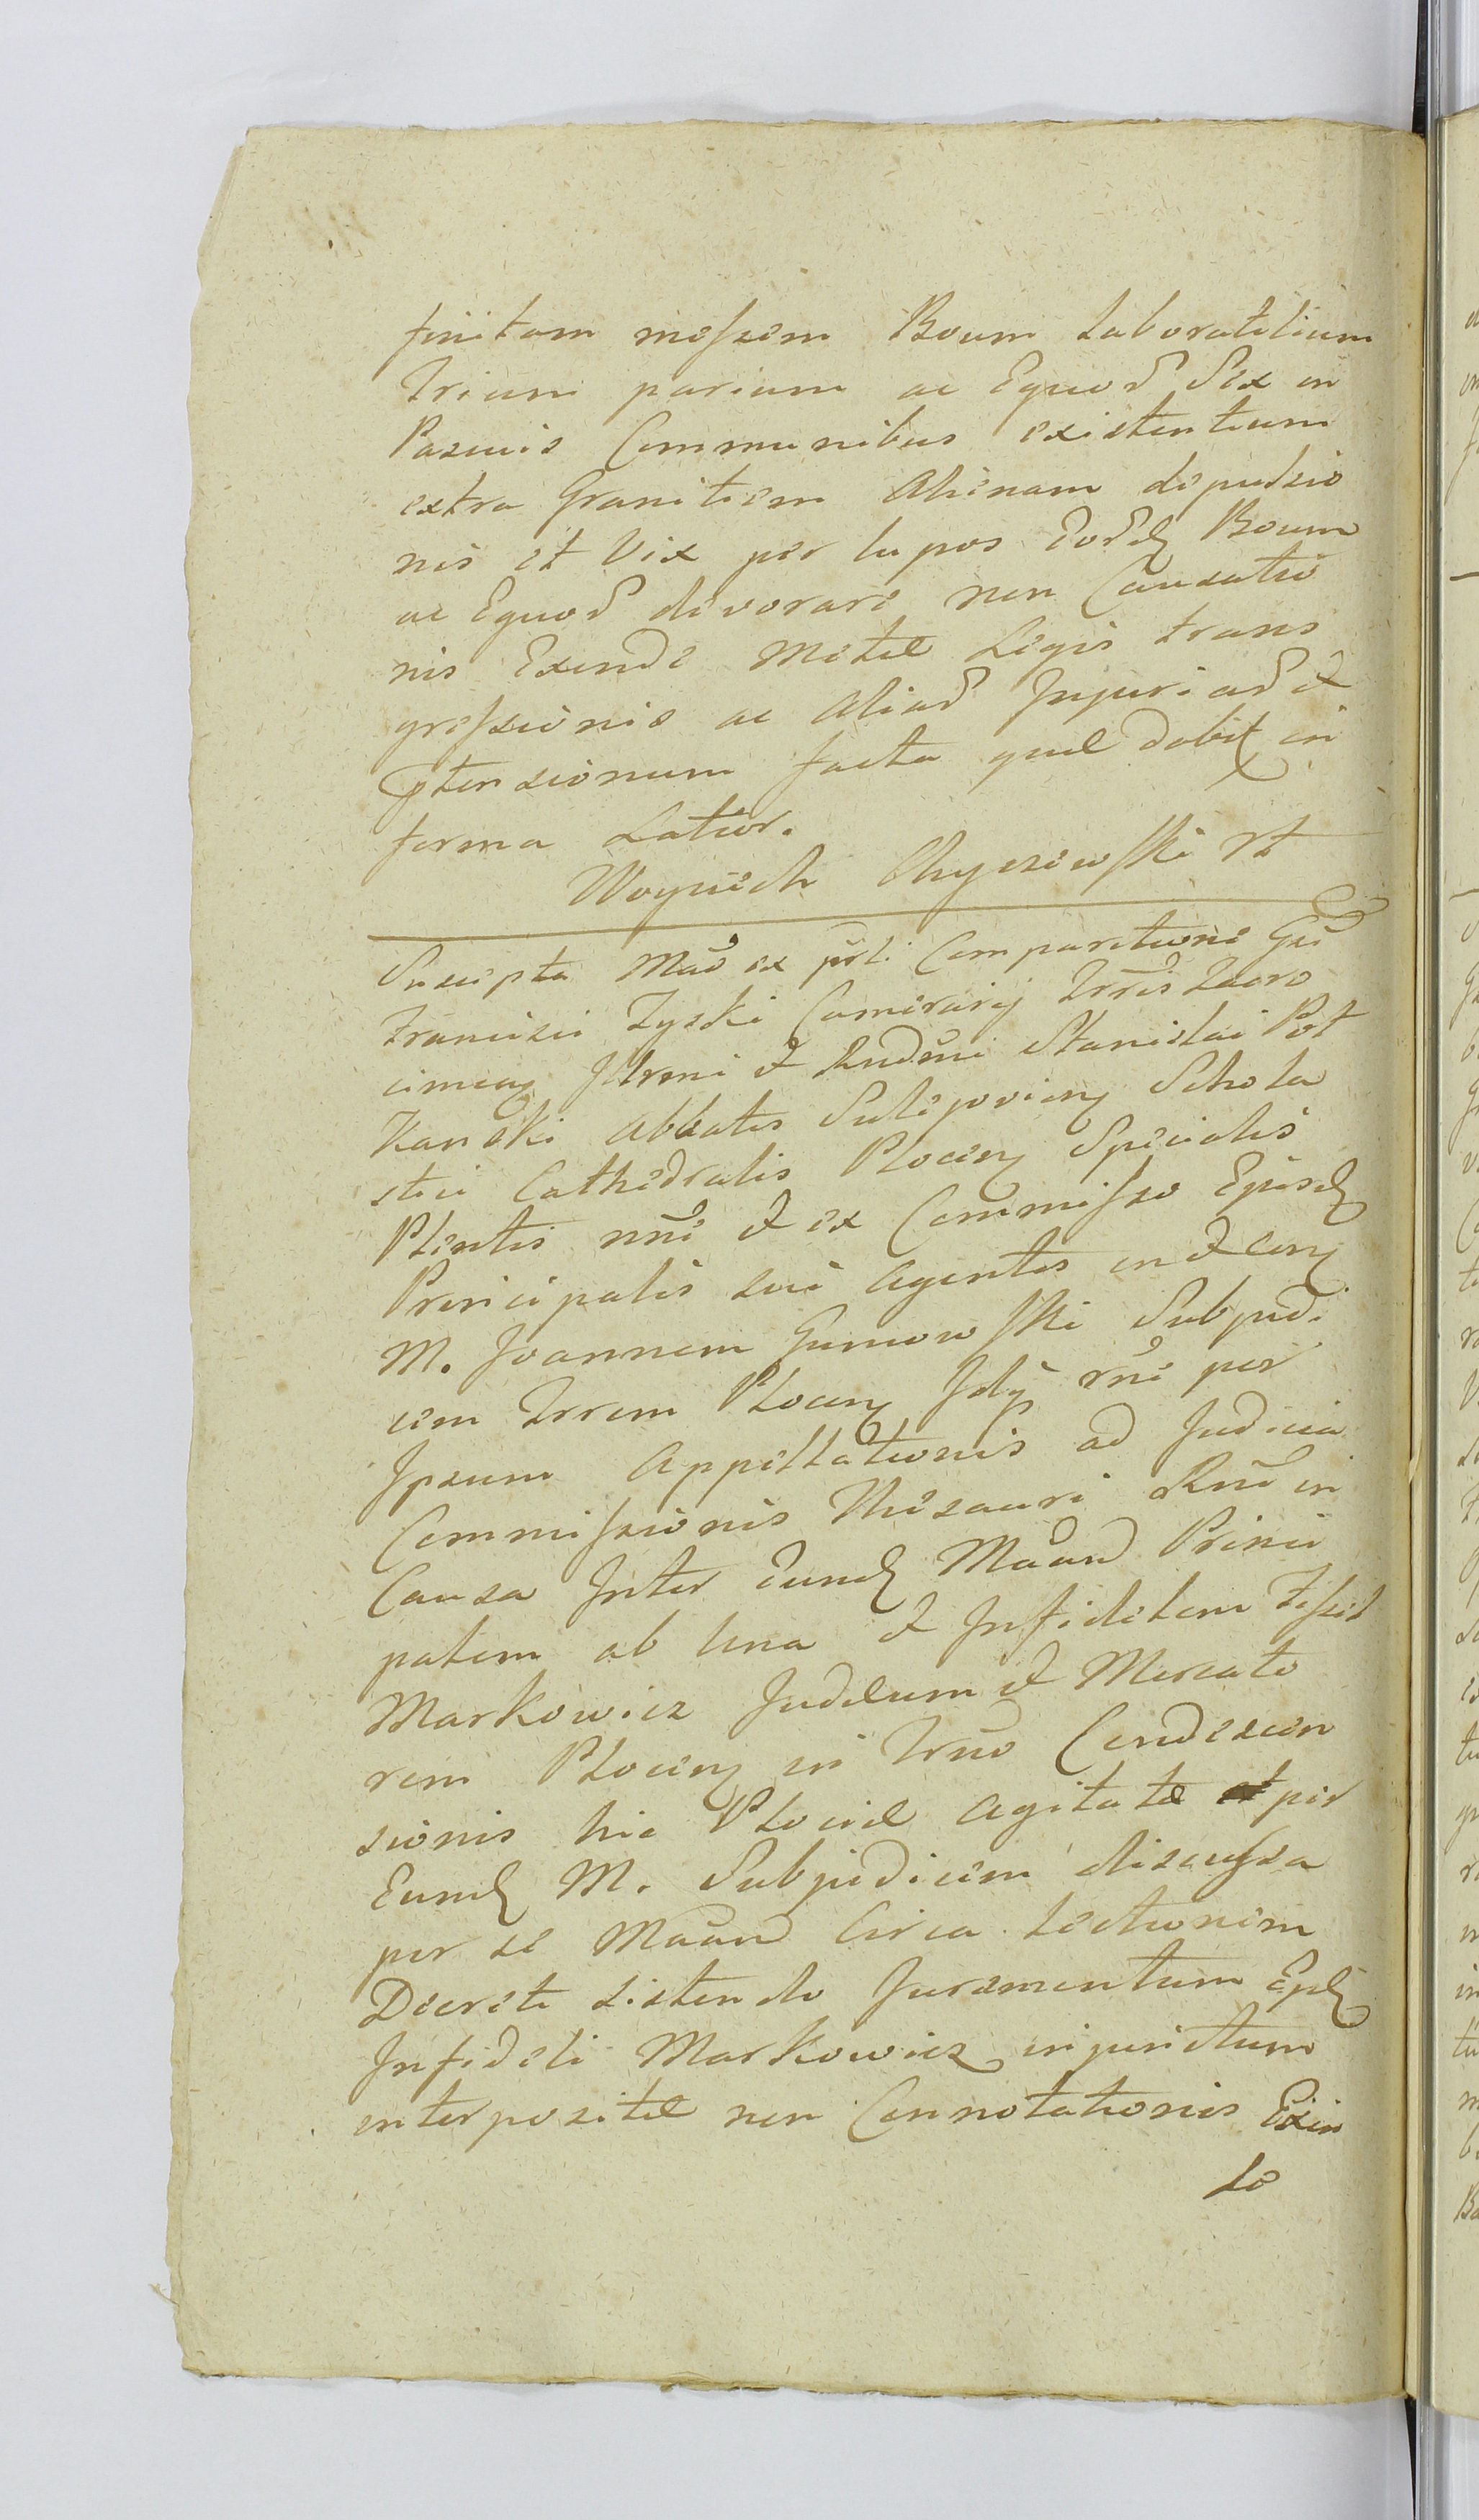 finitam messem Boum Laboratilium
Trium parium ac Equor Sex in
Pascuis Communibus existentium
extra Granitiem Alienam depulsio
nis et Vix per lupos Eord Boum
ac Equor devorari non Causatio
nis Exinde Metae Legis trans
gressionis ac Aliar Injuriar et
Ptensionum facta quae dabit in
forma Latior.
Woyciech Chyczewski Rt
Suscepta Mãõ ex psti Comparitione Gsi
Francisci Zyski Camerarij Trris Zacro
cimen Illrmi et Rndmi Stanislai Pot
kanski Abbatis Sulejovien Schola
stici Cathedralis Plocen Specialis
Plentis nni et ex Commisso Ejusd
Principalis sui Agentis in et con
M. Joannem Gumowski Subjudi
cem Trrem Plocen Idq rne per
Ipsum Appellationis ad Judicia
Commissionis Thesauri Rni in
Causa Inter Eund Mãan Princi
palem ab Una et Infidelem
Markowicz Judaeum et Mercato
rem Plocen in Trno Condescen
sionis hic Plociae Agitatae per
Eund M. Subjudicem discussa
per se Mãan Circa Lectionem
Decreti sistendo Juramentum Epd
Infideli Markowicz injunctum
interpositae non Connotationis Exin
de